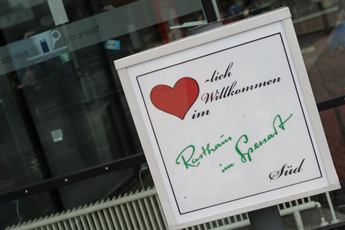 -lich
Willkommen
im
Rasthaus
im Spessart
Süd
yourself